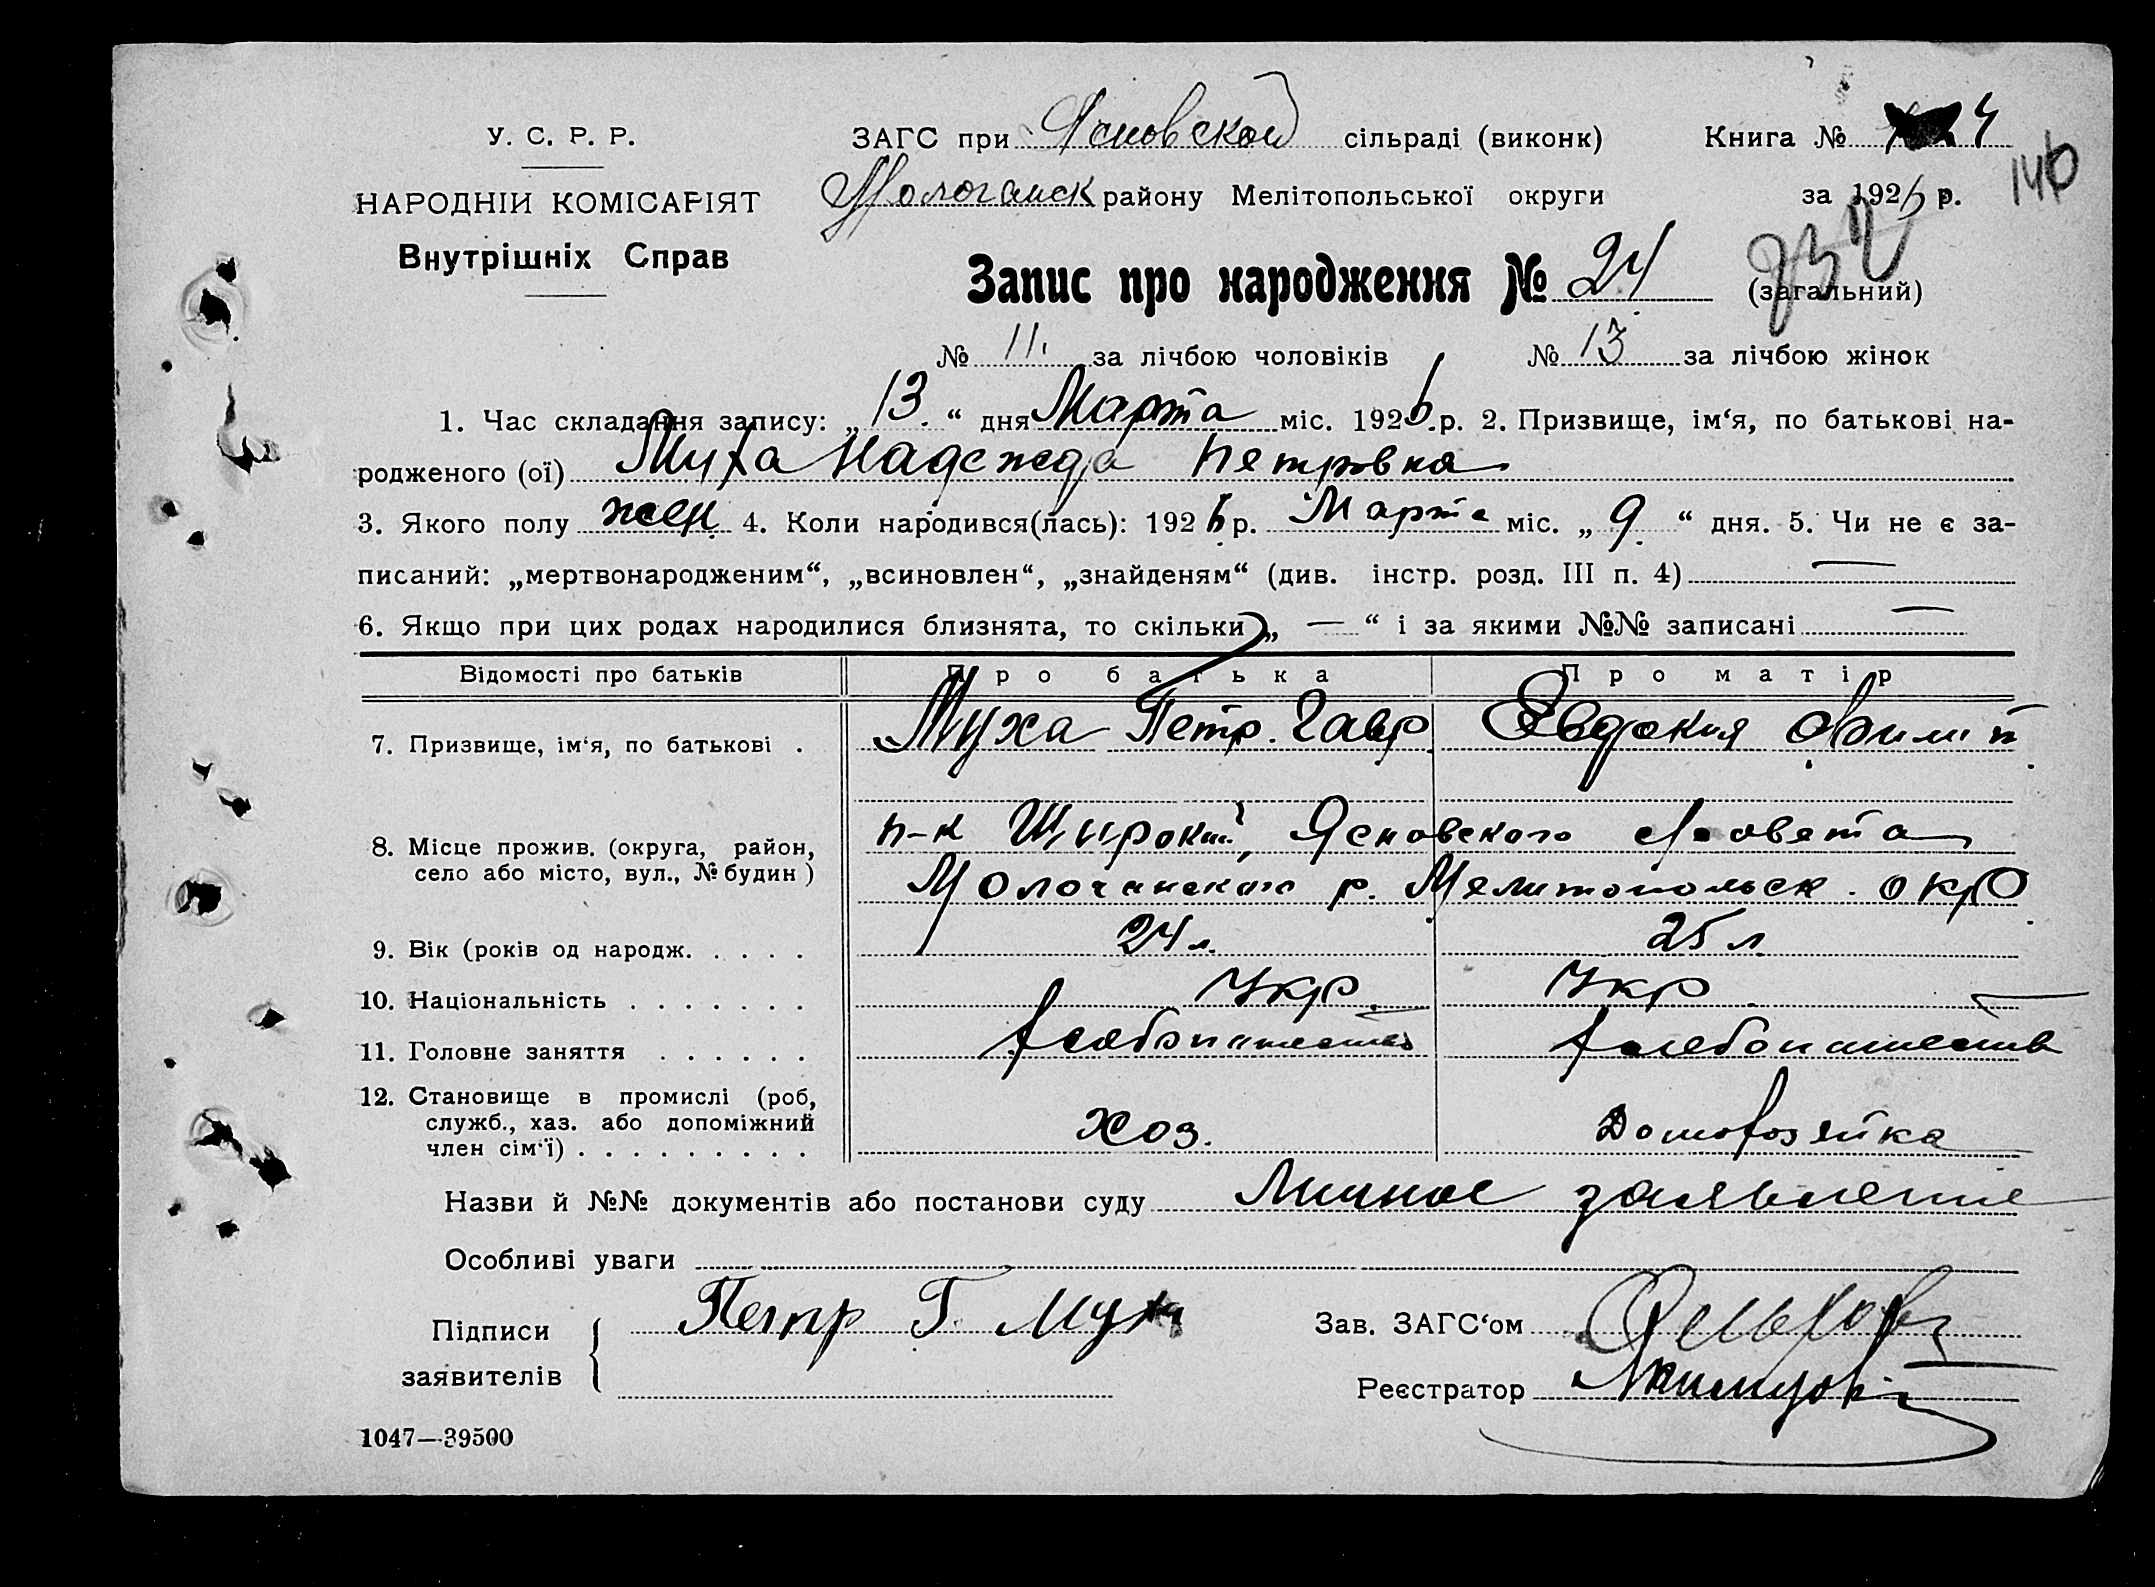 У. С. Р. Р.
НАРОДНІЙ КОМІСАРІЯТ
Внутрішніх Справ
ЗАГС при Ясновской сільраді (виконк) Книга № 4
Молочанск району Мелітопольської округи за 1926 р.
146
Запис про народження № 24 (загальний)
732
№ 11. за лічбою чоловіків № 13 за лічбою жінок
1. Час складання запису: „ 13. “ дня Марта міс. 1926.р. 2. Призвище, ім‘я, по батькові на-
родженого (ої) Муха Надежда Петровна
3. Якого полу жен. 4. Коли народився(лась): 1926 р. Марта міс. „ 9. “ дня. 5. Чи не є за-
писаний: „мертвонародженим“, „всиновлен“, „знайденям“ (див. інстр. розд. III п. 4) —
6. Якщо при цих родах народилися близнята, то скільки „ — “ і за якими №№ записані —
Відомості про батьків Про батька Про матір
7. Призвище, ім‘я, по батькові . Муха Петр. Гавр. Евдокия
8. Місце прожив. (округа, район, село або місто, вул., № будин) п-к Широкий, Ясновского с/совета
Молочанского р. Мелитопольск. окр
9. Вік (років од народж. . . . . 24 л. 25 л
10. Національність . . . . . . . Укр. Укр.
11. Головне заняття . . . . . . хлебопашество хлебопашеств
12. Становище в промислі (роб, служб., хаз. або допоміжний член сім‘ї) . . . . . . . . . Хоз. Домохозяйка
Назви й №№ документів або постанови суду Личное заявление
Особливі уваги
Підписи заявителів { Петр Г. Муха
Зав. ЗАГС‘ом
Реєстратор
1047—39500